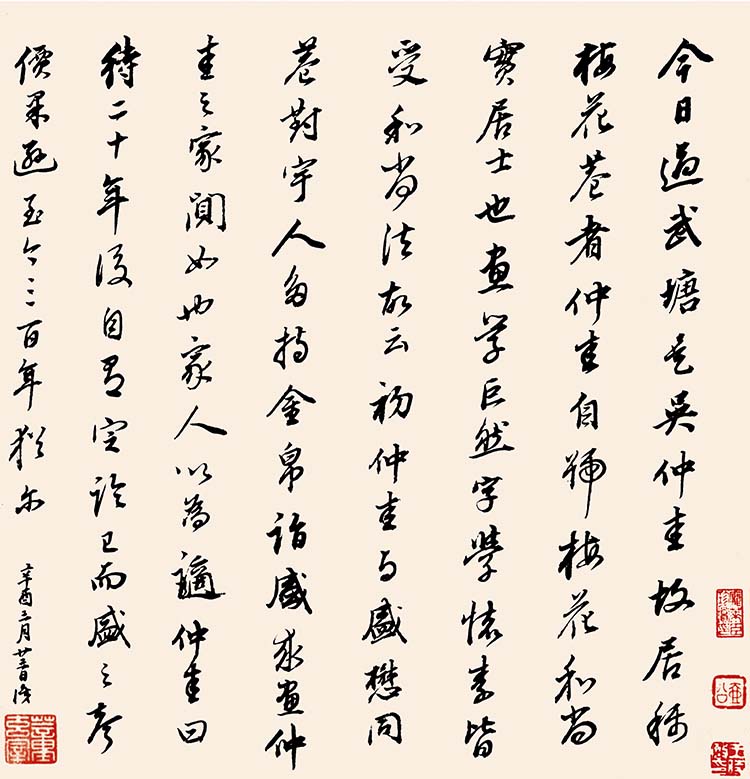 今日過武塘是吳仲圭故居稱
梅花菴者仲圭自號梅花和尚
實居士也畫學巨然字學懷素皆
受和尚法故云初仲圭与盛懋同
巷對宇人多持金帛詣盛求畫仲
圭之家闃如也家人以為謫仲圭曰
待二十年後自有定論已而盛之聲
價果遜至今三百年猶尔
辛酉二月廿